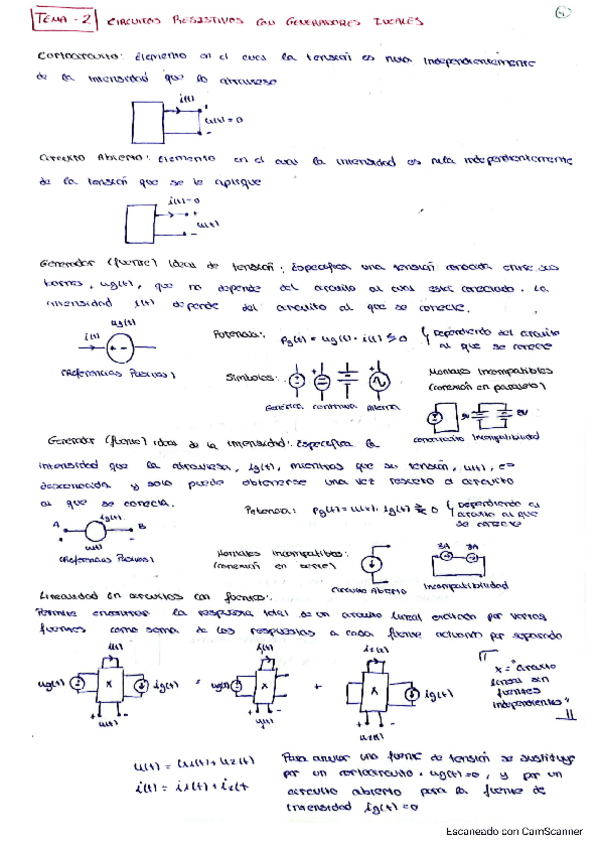 TEMA - 2 CIRCUITOS RESISTIVOS CON GENERADORES IDEALES
Cortocircuito: Elemento en el cual la tensión es nula independientemente
de la intensidad que lo atraviese
i(t)
+
u(t) = 0
-
Circuito Abierto: Elemento en el cual la intensidad es nula independientemente
de la tensión que se le aplique
i(t)=0
+
u(t)
-
Generador (fuente) ideal de tensión: Especifica una tensión conocida entre sus
bornes, ug(t), que no depende del circuito al cual esté conectado. La
intensidad i(t) depende del circuito al que se conecte.
ug(t)
i(t)
+ -
(Referencias Pasivas)
Potencia: Pg(t) = ug(t) · i(t) ≷ 0
Dependiendo del circuito
al que se conecte
Símbolos:
Genérica continua Alterna
Montajes Incompatibles
(conexión en paralelo)
cortocircuito Incompatibilidad
Generador (fuente) ideal de la intensidad: Especifica la
intensidad que la atraviesa, ig(t), mientras que su tensión, u(t), es
desconocida y solo puede obtenerse una vez resuelto el circuito
al que se conecta.
ig(t)
A B
u(t)
(Referencias Pasivas)
Potencia: Pg(t) = u(t) · ig(t) ≷ 0
Dependiendo el
circuito al que
se conecte
Montajes Incompatibles:
(conexión en serie)
Circuito Abierto
3A 8A
Incompatibilidad
Linealidad en circuitos con fuentes:
Permite encontrar la respuesta total de un circuito lineal excitado por varias
fuentes como suma de las respuestas a cada fuente actuando por separado
i(t) i1(t) i2(t)
ug(t) x ig(t) = ug(t) x + x ig(t)
u(t) u1(t) u2(t)
x = "circuito
lineal sin
fuentes
independientes"
u(t) = u1(t) + u2(t)
i(t) = i1(t) + i2(t
Para anular una fuente de tensión se sustituye
por un cortocircuito, ug(t)=0, y por un
circuito abierto para la fuente de
intensidad ig(t)=0
Escaneado con CamScanner